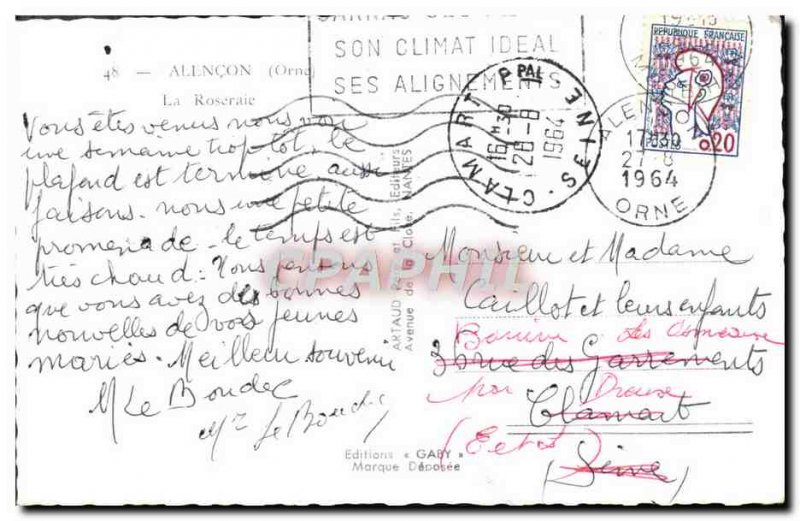 SON CLIMAT IDEAL
SES ALIGNEMENTS
48 — ALENÇON (Orne)
La Roseraie
REPUBLIQUE FRANÇAISE
POSTES 0,20
CLAMART PPAL
16 H 30
26-8
1964
SEINE
ALENÇON
17H30
27-8
1964
ORNE
Vous êtes venus nous voir
une semaine trop tôt, le
plafond est terminé aussi
faisons-nous une petite
promenade. le temps est
très chaud. Nous pensons
que vous avez des bonnes
nouvelles de vos jeunes
mariés. Meilleur souvenir
M Le Boudec
Mme Le Boudec
ARTAUD Père et Fils, Editeurs
Avenue de la Close, NANTES
CPAPHIL
Monsieur et Madame
Caillot et leurs enfants
3 rue des Garrements
par Dreux
Clamart
(E et L)
(Seine)
Editions « GABY »
Marque Déposée